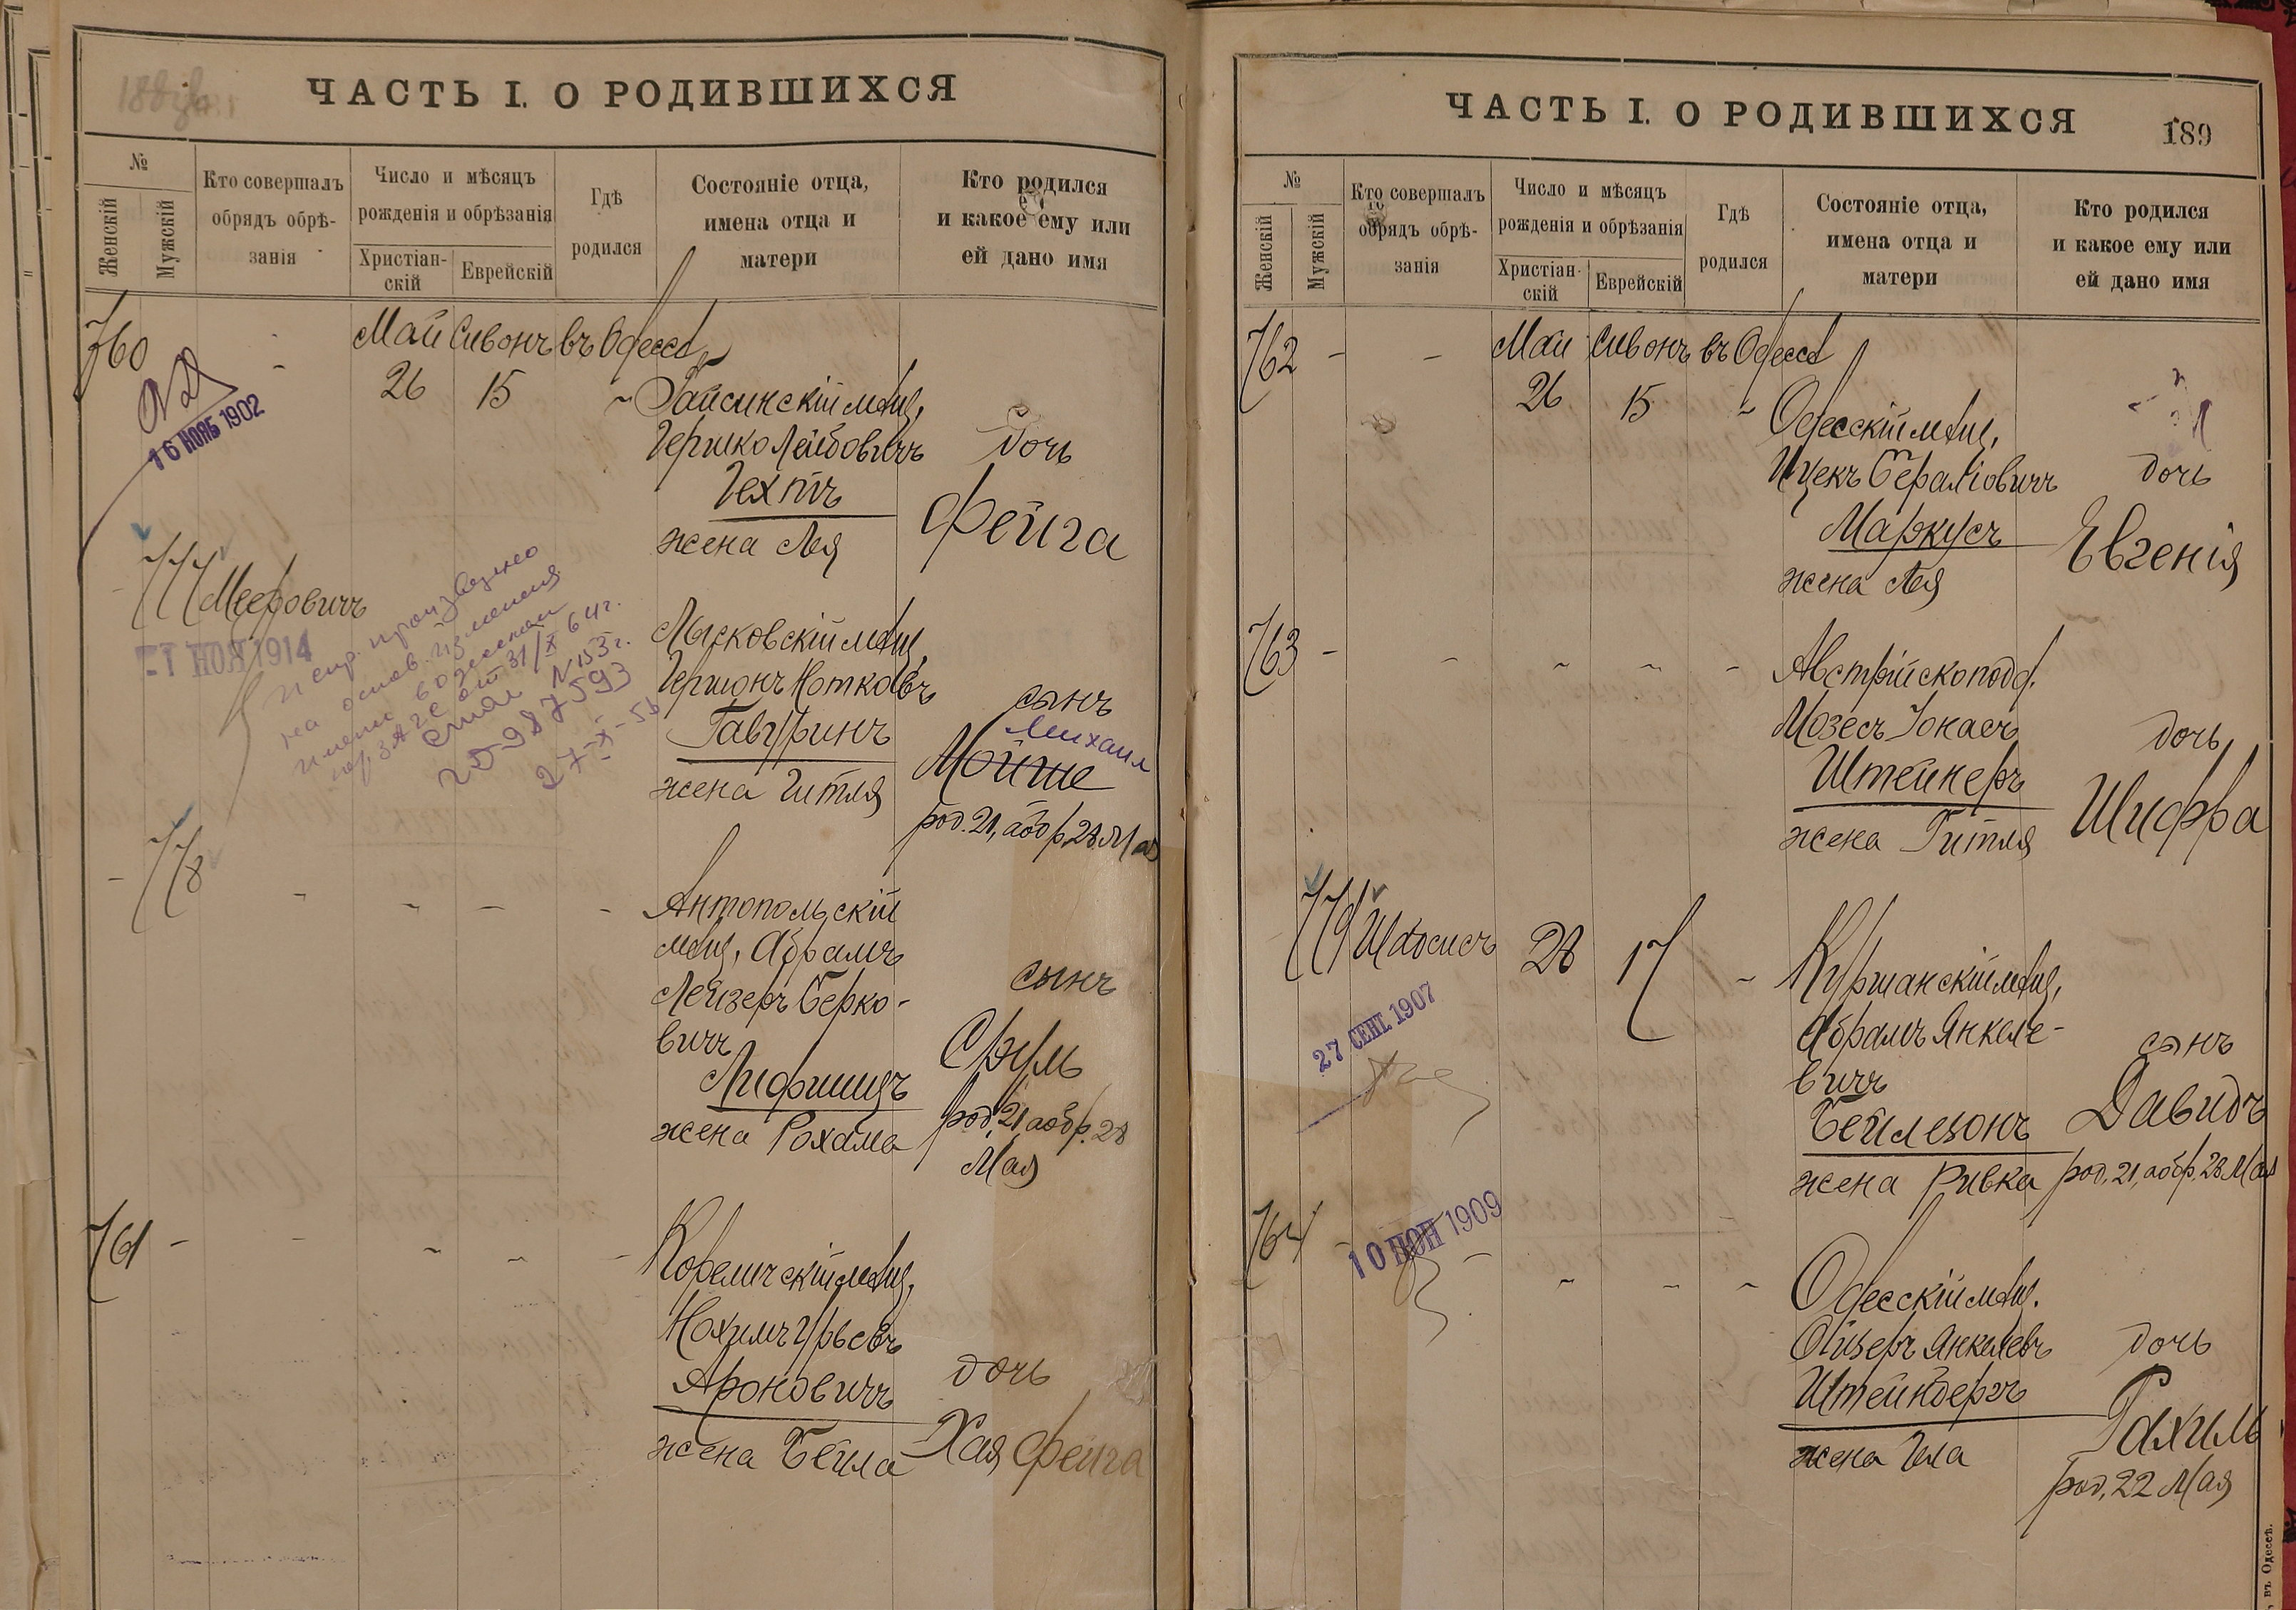 ЧАСТЬ I. О РОДИВШИХСЯ
№
Женскій
Мужскій
Кто совершалъ
обрядъ обрѣ-
занія
Число и мѣсяцъ
рожденія и обрѣзанія
Христіан-
скій
Еврейскій
Гдѣ
родился
Состояніе отца,
имена отца и
матери
Кто родился
и какое ему или
ей дано имя
760 - Май Сивонъ въ Одессѣ
26 15 ~ Гайсинскій мѣщ.
16 НОЯБ 1902
Гершко Лейбовичъ дочь
Гехтъ Фейга
жена Лея
777 Мееровичъ
-1 НОЯ 1914
испр. произведено
на основ. изменения
имени
от 31/X 64 г.
N 153 г.
27-X-56
Лысковскій мѣщ.
Гершонъ Нотковъ сынъ
Гавуринъ Михаил
Мойше
жена Гитля
род. 21, а обр. 28 Мая
- 778 - - - -
Антопольскій
мѣщ. Абрамъ
Лейзеръ Берко- сынъ
вичъ Сруль
Лифшицъ
жена Рохама род. 21 а обр. 28
Мая
761 - - ~ ~ -
Кореличскій мѣщ.
Нохимъ Урьевъ
Ароновичъ дочь
жена Бейла Хая Фейга
ЧАСТЬ I. О РОДИВШИХСЯ 189
№
Женскій
Мужскій
Кто совершалъ
обрядъ обрѣ-
занія
Число и мѣсяцъ
рожденія и обрѣзанія
Христіан-
скій
Еврейскій
Гдѣ
родился
Состояніе отца,
имена отца и
матери
Кто родился
и какое ему или
ей дано имя
762 - - Май Сивонъ въ Одессѣ
26 15 ~ Одесскій мѣщ.
Ицекъ дочь
Маркусъ Евгенія
жена Лея
763 - - ~ ~ -
Австрійско подд.
Мозесъ Іонасъ дочь
Штейнеръ Шифра
жена Гитля
779 28 17 -
27 СЕНТ. 1907
Абрамъ Янкеле- сынъ
вичъ Давидъ
Бейлезонъ
жена Ривка род. 21, а обр. 28 Мая
764 - - ~ - ~
10 ІЮН 1909
Одесскій мѣщ.
Ойзеръ Янкелевъ дочь
Штейнбергъ Рахиль
жена Гела
род. 22 Мая
въ Одессѣ.